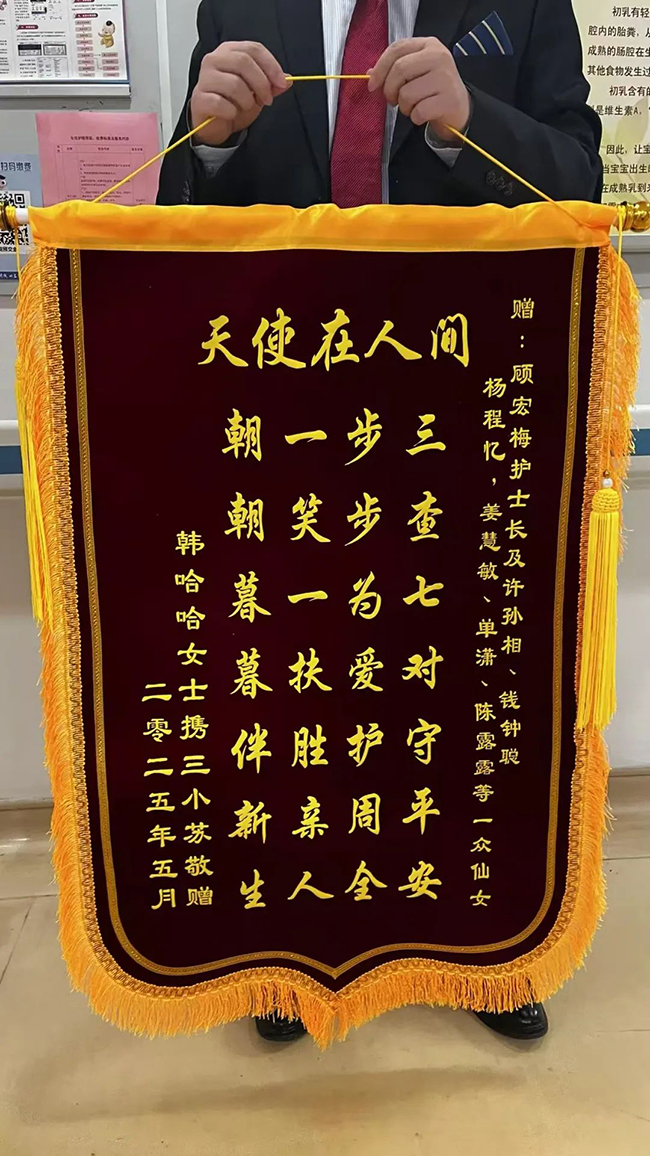 赠：顾宏梅护士长及许孙相、钱钟聪
杨程忆，姜慧敏、单潇、陈露露等一众仙女
天使在人间
三查七对守平安
步步为爱护周全
一笑一扶胜亲人
朝朝暮暮伴新生
韩哈哈女士携三小苏敬赠
二零二五年五月
扫码缴费
初乳有轻
腔内的胎粪，从
成熟的肠腔在生
其他食物发生过
初乳含有的
是维生素A，
因此，让宝
当宝宝出生
在成熟乳到